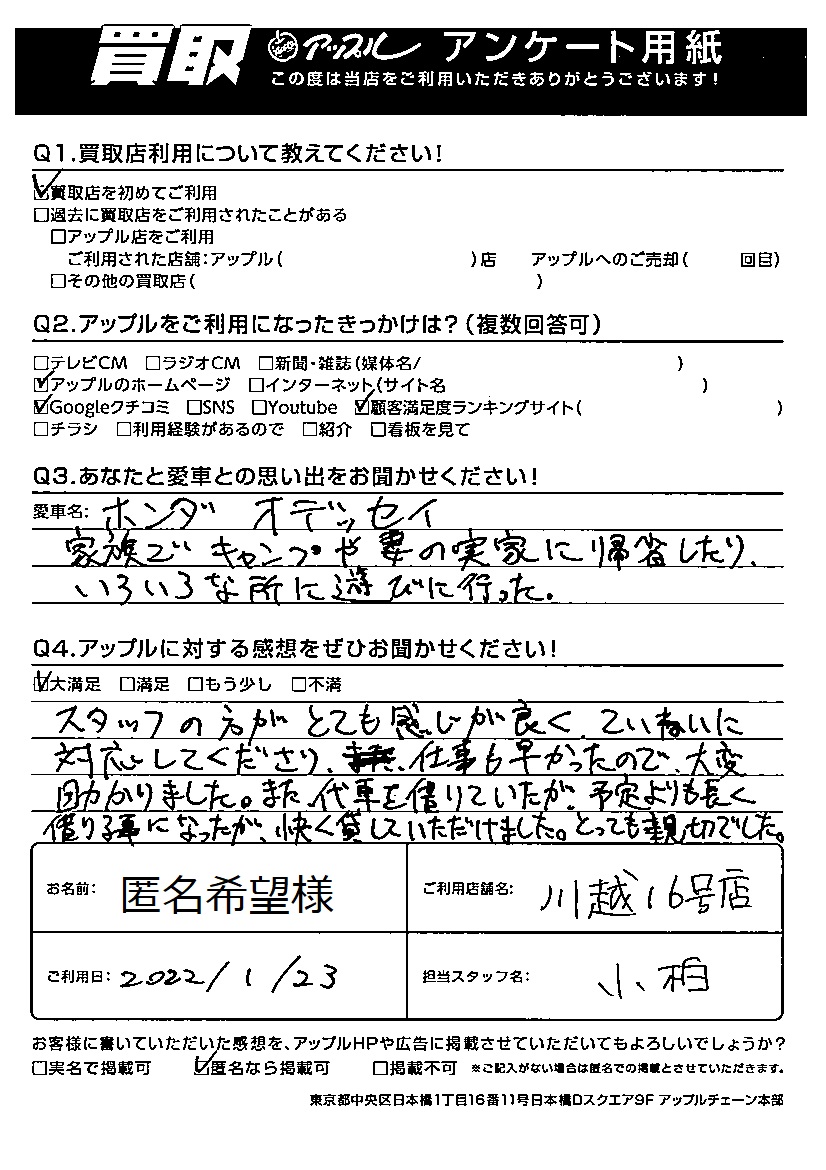 買取 アップル アンケート用紙
この度は当店をご利用いただきありがとうございます!
Q1.買取店利用について教えてください!
☑買取店を初めてご利用
□過去に買取店をご利用されたことがある
□アップル店をご利用
ご利用された店舗:アップル( )店 アップルへのご売却( 回目)
□その他の買取店( )
Q2.アップルをご利用になったきっかけは?(複数回答可)
□テレビCM □ラジオCM □新聞・雑誌(媒体名/ )
☑アップルのホームページ □インターネット(サイト名 )
☑Googleクチコミ □SNS □Youtube ☑顧客満足度ランキングサイト( )
□チラシ □利用経験があるので □紹介 □看板を見て
Q3.あなたと愛車との思い出をお聞かせください!
愛車名: ホンダ オデッセイ
家族でキャンプや妻の実家に帰省したり、
いろいろな所に遊びに行った。
Q4.アップルに対する感想をぜひお聞かせください!
☑大満足 □満足 □もう少し □不満
スタッフの方がとても感じが良く、ていねいに
対応してくださり、仕事も早かったので、大変
助かりました。また、代車を借りていたが、予定よりも長く
借りる事になったが、快く貸していただけました。とっても親切でした。
お名前: 匿名希望様 ご利用店舗名: 川越16号店
ご利用日: 2022/1/23 担当スタッフ名: 小柏
お客様に書いていただいた感想を、アップルHPや広告に掲載させていただいてもよろしいでしょうか?
□実名で掲載可 ☑匿名なら掲載可 □掲載不可 ※ご記入がない場合は匿名での掲載とさせていただきます。
東京都中央区日本橋1丁目16番11号日本橋Dスクエア9F アップルチェーン本部